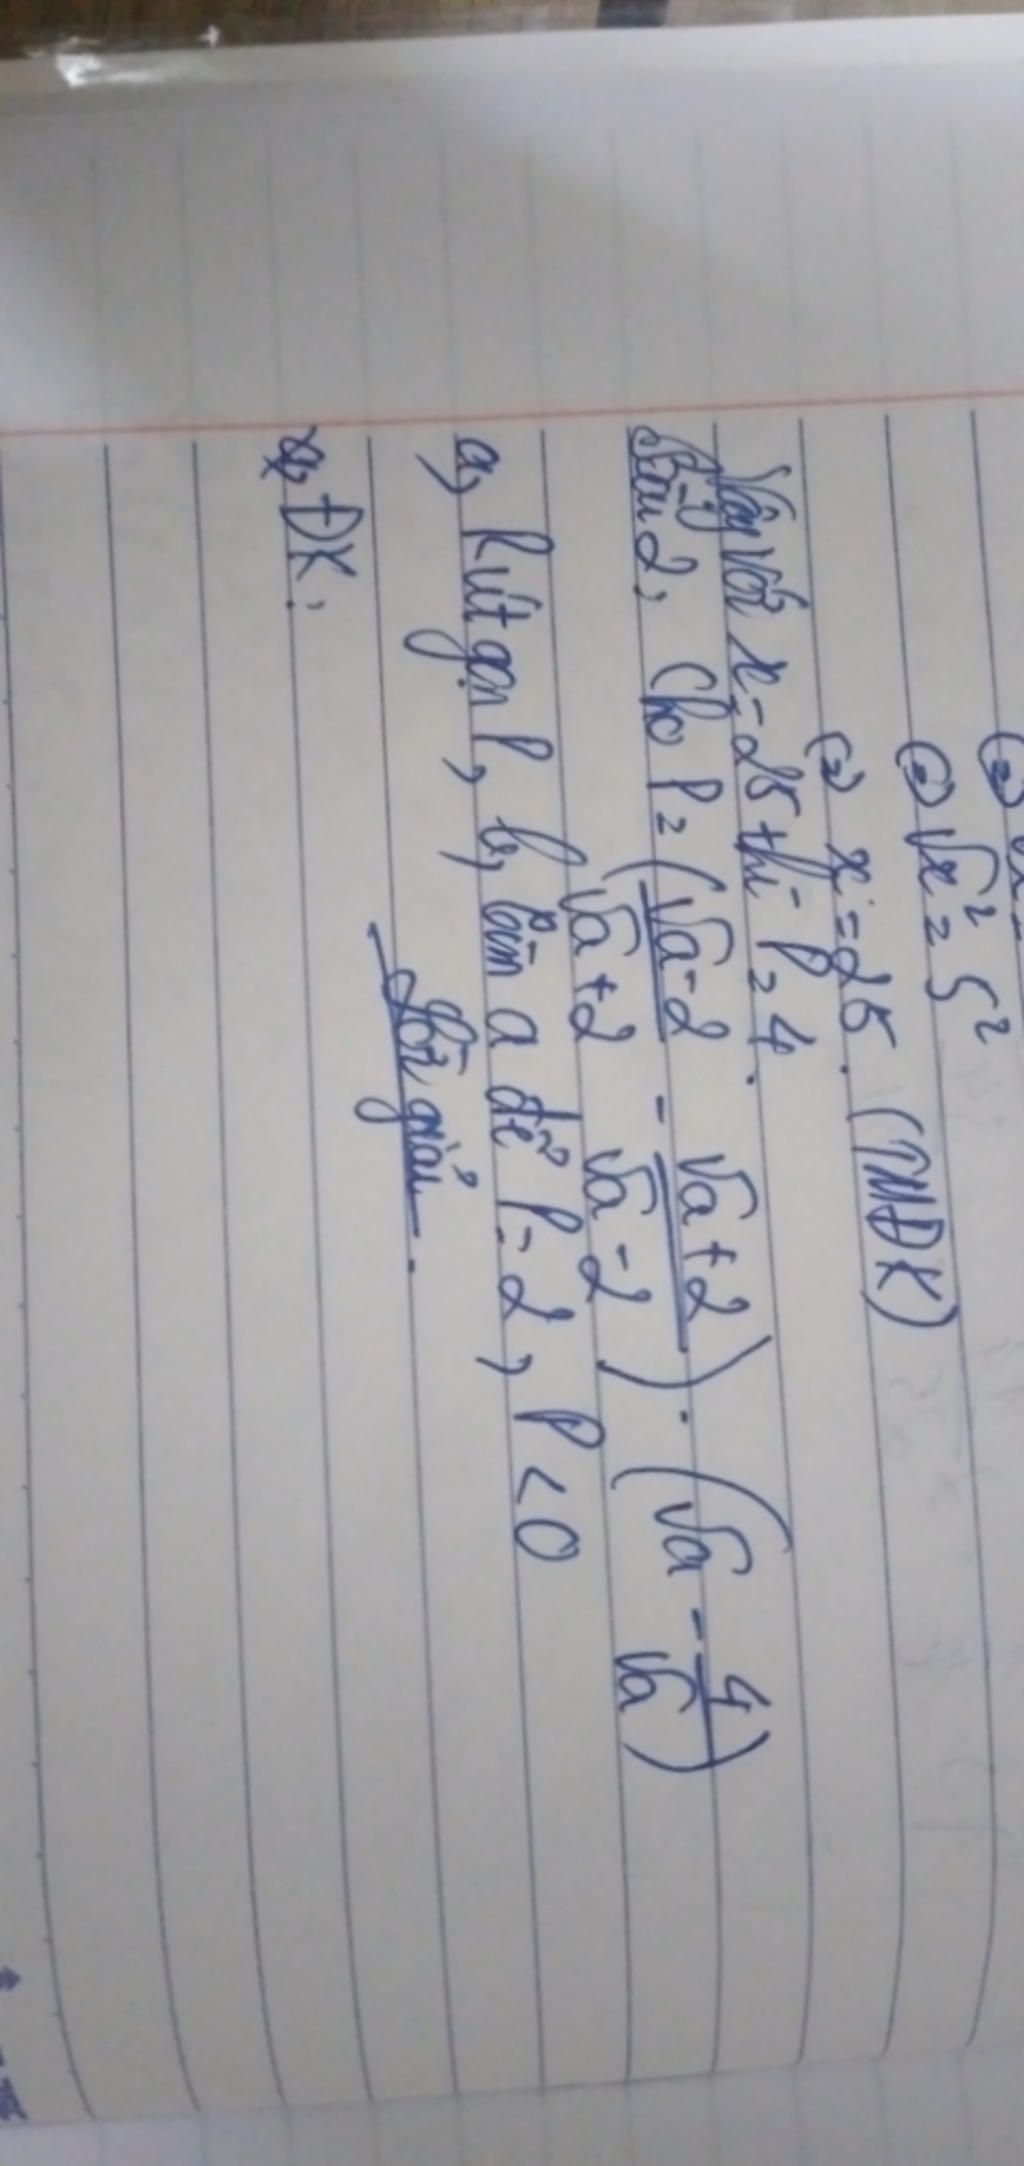 (=) √x² = 5²
(=) x = 25. (TMĐK)
Vậy với x = 25 thì P = 4.
Bài 2, Cho P = (√a-2/√a+2 - √a+2/√a-2) . (√a - 4/√a)
a, Rút gọn P, b, Tìm a để P = 2, P < 0
Lời giải.
a, ĐK: